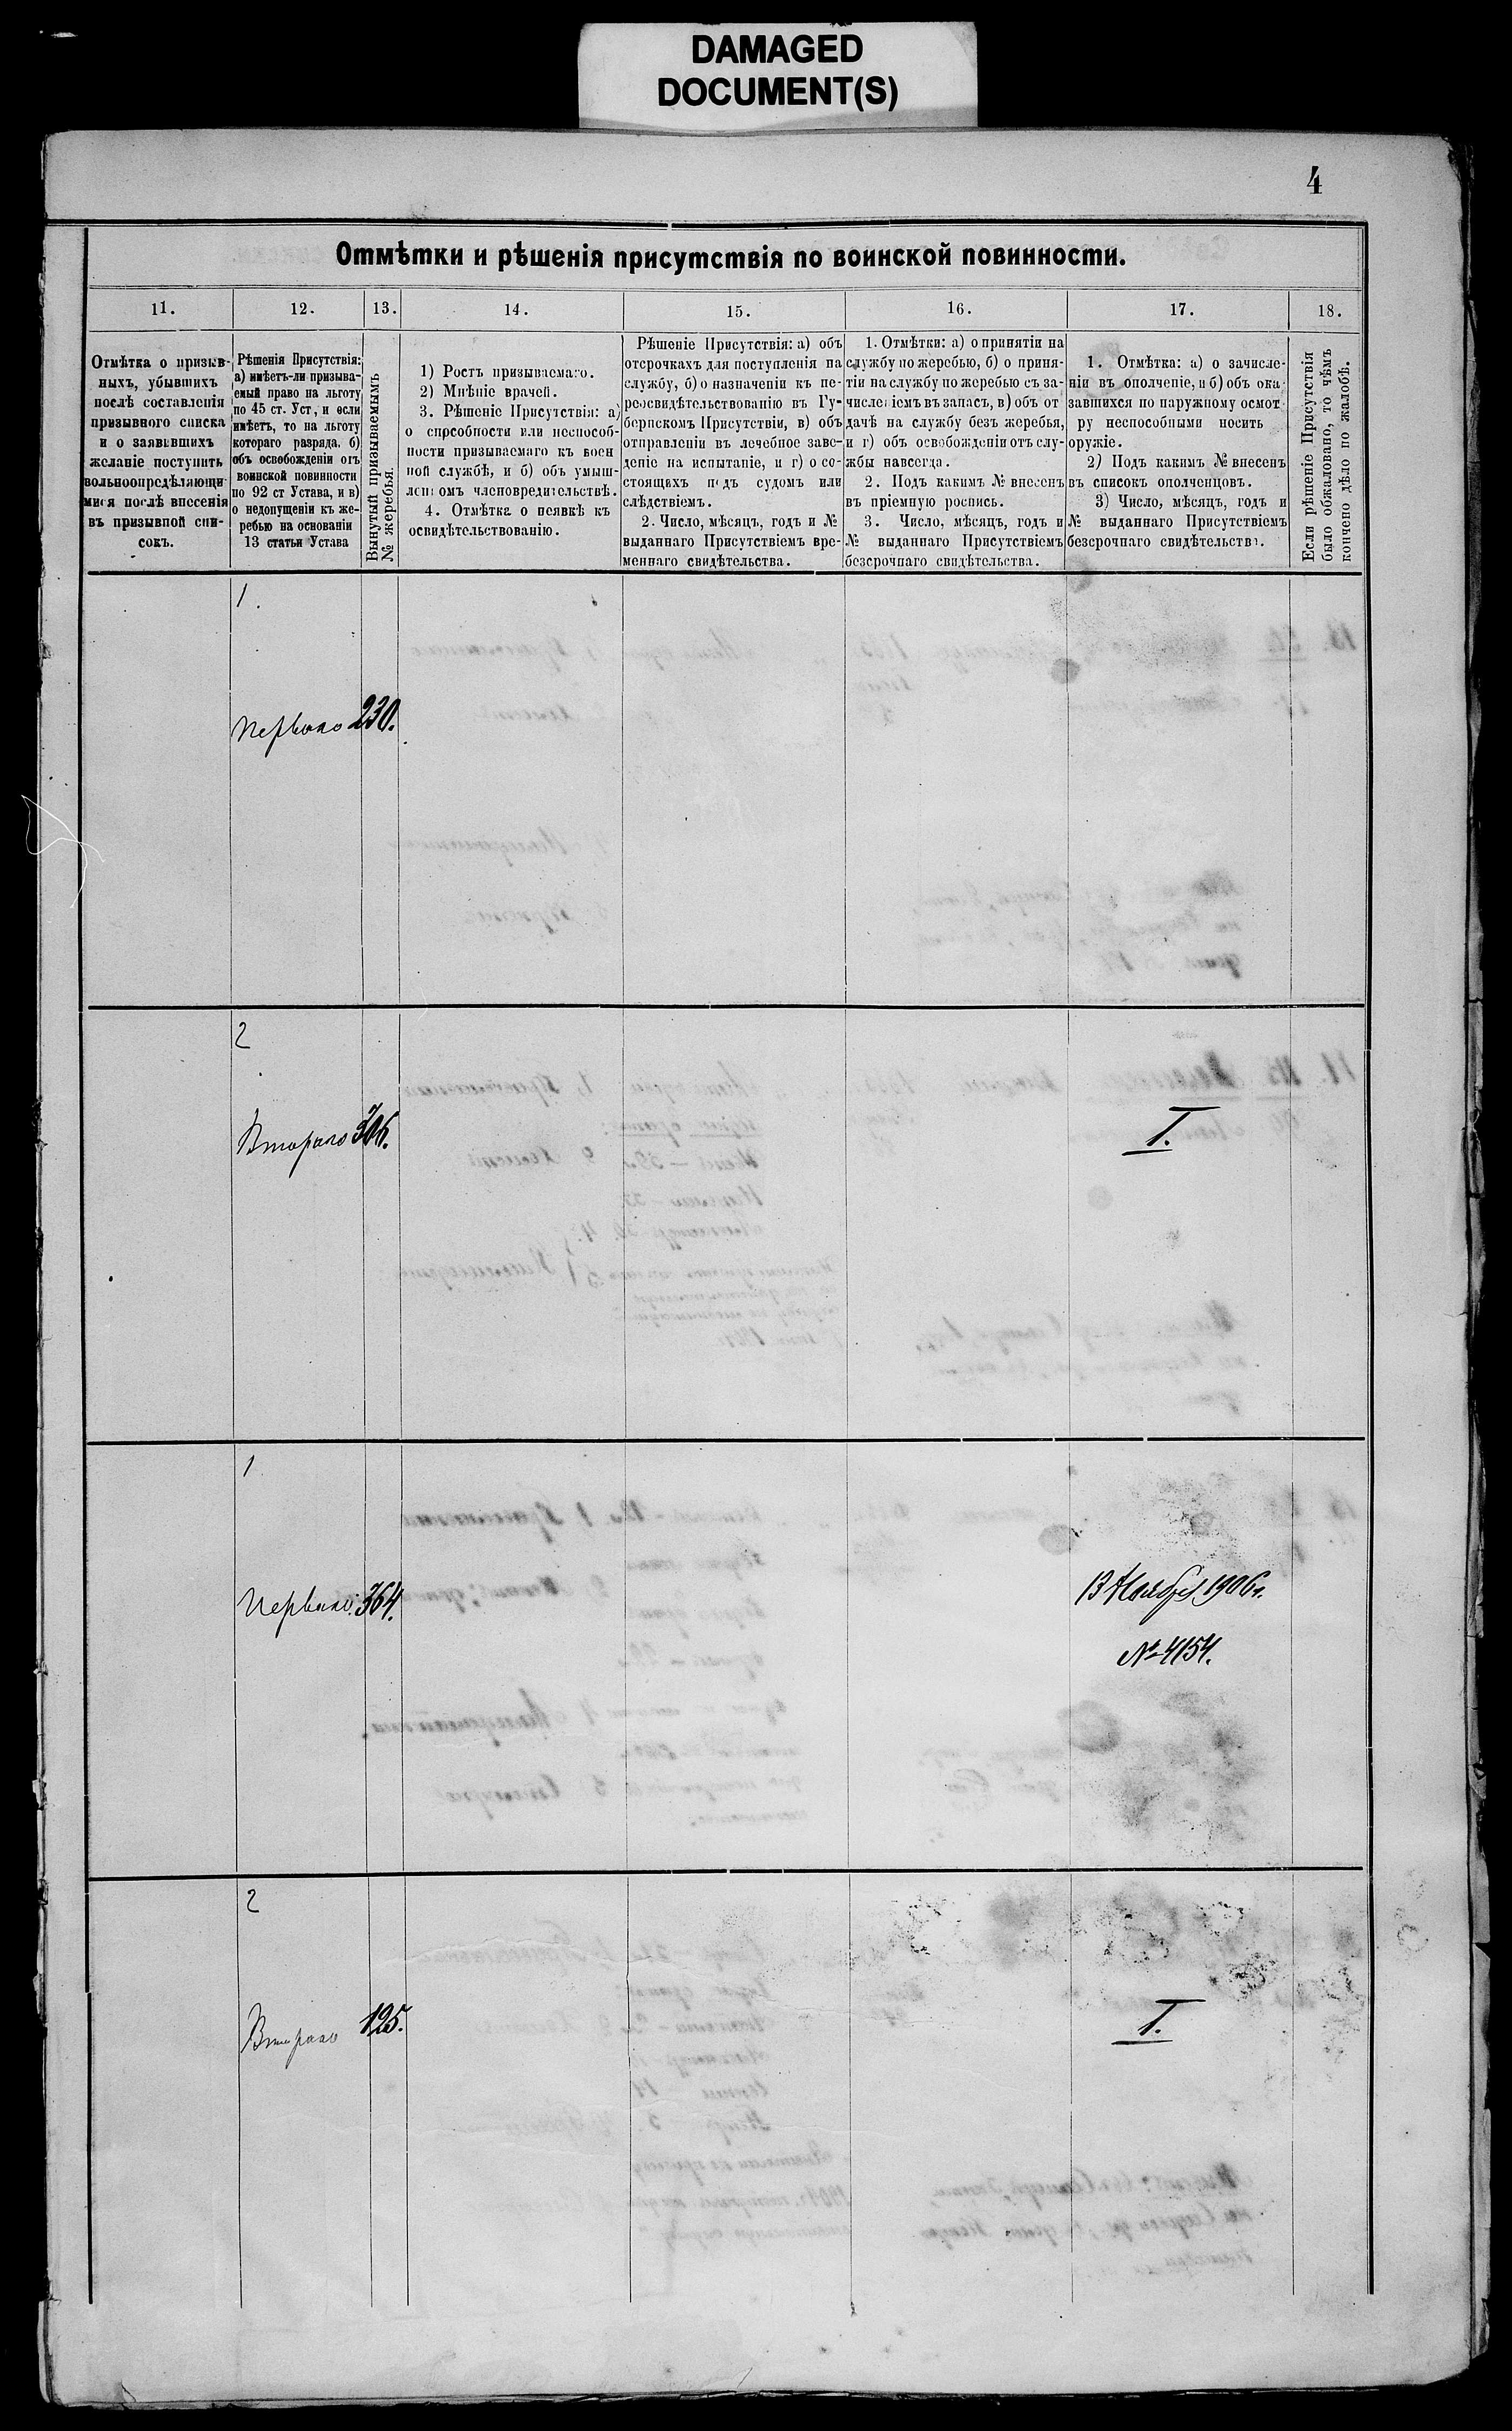 DAMAGED
DOCUMENT(S)
4
Отмѣтки и рѣшенія присутствія по воинской повинности.
11.
12.
13.
14.
15.
16.
17.
18.
Отмѣтка о призыв-
ныхъ, убывшихъ
послѣ составленія
призывного списка
и о заявившихъ
желаніе поступить
вольноопредѣляющи-
мися послѣ внесенія
въ призывной спи-
сокъ.
Рѣшенія Присутствія:
а) имѣетъ-ли призыва-
емый право на льготу
по 45 ст. Уст, и если
имѣетъ, то на льготу
котораго разряда, б)
объ освобожденіи отъ
воинской повинности
по 92 ст Устава, и в)
о недопущеніи къ же-
ребью на основаніи
13 статьи Устава
Вынутый призываемымъ
№ жеребья.
1) Ростъ призываемаго.
2) Мнѣніе врачей.
3. Рѣшеніе Присутствія: а)
о способности или неспособ-
ности призываемаго къ воен
ной службѣ, и б) объ умыш-
леномъ членовредительствѣ.
4. Отмѣтка о неявкѣ къ
освидѣтельствованію.
Рѣшеніе Присутствія: а) объ
отсрочкахъ для поступленія на
службу, б) о назначеніи къ пе-
реосвидѣтельствованію въ Гу-
бернскомъ Присутствіи, в) объ
отправленіи въ лечебное заве-
деніе на испытаніе, и г) о со-
стоящихъ подъ судомъ или
слѣдствіемъ.
2. Число, мѣсяцъ, годъ и №
выданнаго Присутствіемъ вре-
меннаго свидѣтельства.
1. Отмѣтки: а) о принятіи на
службу по жеребью, б) о приня-
тіи на службу по жеребью съ за-
численіемъ въ запасъ, в) объ от
дачѣ на службу безъ жеребья,
и г) объ освобожденіи отъ слу-
жбы навсегда.
2. Подъ какимъ № внесенъ
въ пріемную роспись.
3. Число, мѣсяцъ, годъ и
№ выданнаго Присутствіемъ
безсрочнаго свидѣтельства.
1. Отмѣтка: а) о зачисле-
ніи въ ополченіе, и б) объ ока
завшихся по наружному осмот
ру неспособными носить
оружіе.
2) Подъ какимъ № внесенъ
въ списокъ ополченцовъ.
3) Число, мѣсяцъ, годъ и
№ выданнаго Присутствіемъ
безсрочнаго свидѣтельства.
Если рѣшеніе Присутствія
было обжаловано, то чѣмъ
кончено дѣло по жалобѣ.
1.
Перваго 230.
2
Втораго
I.
1
Перваго. 364.
13 Ноября 1906 г.
№ 4154.
2
Втораго 125.
I.